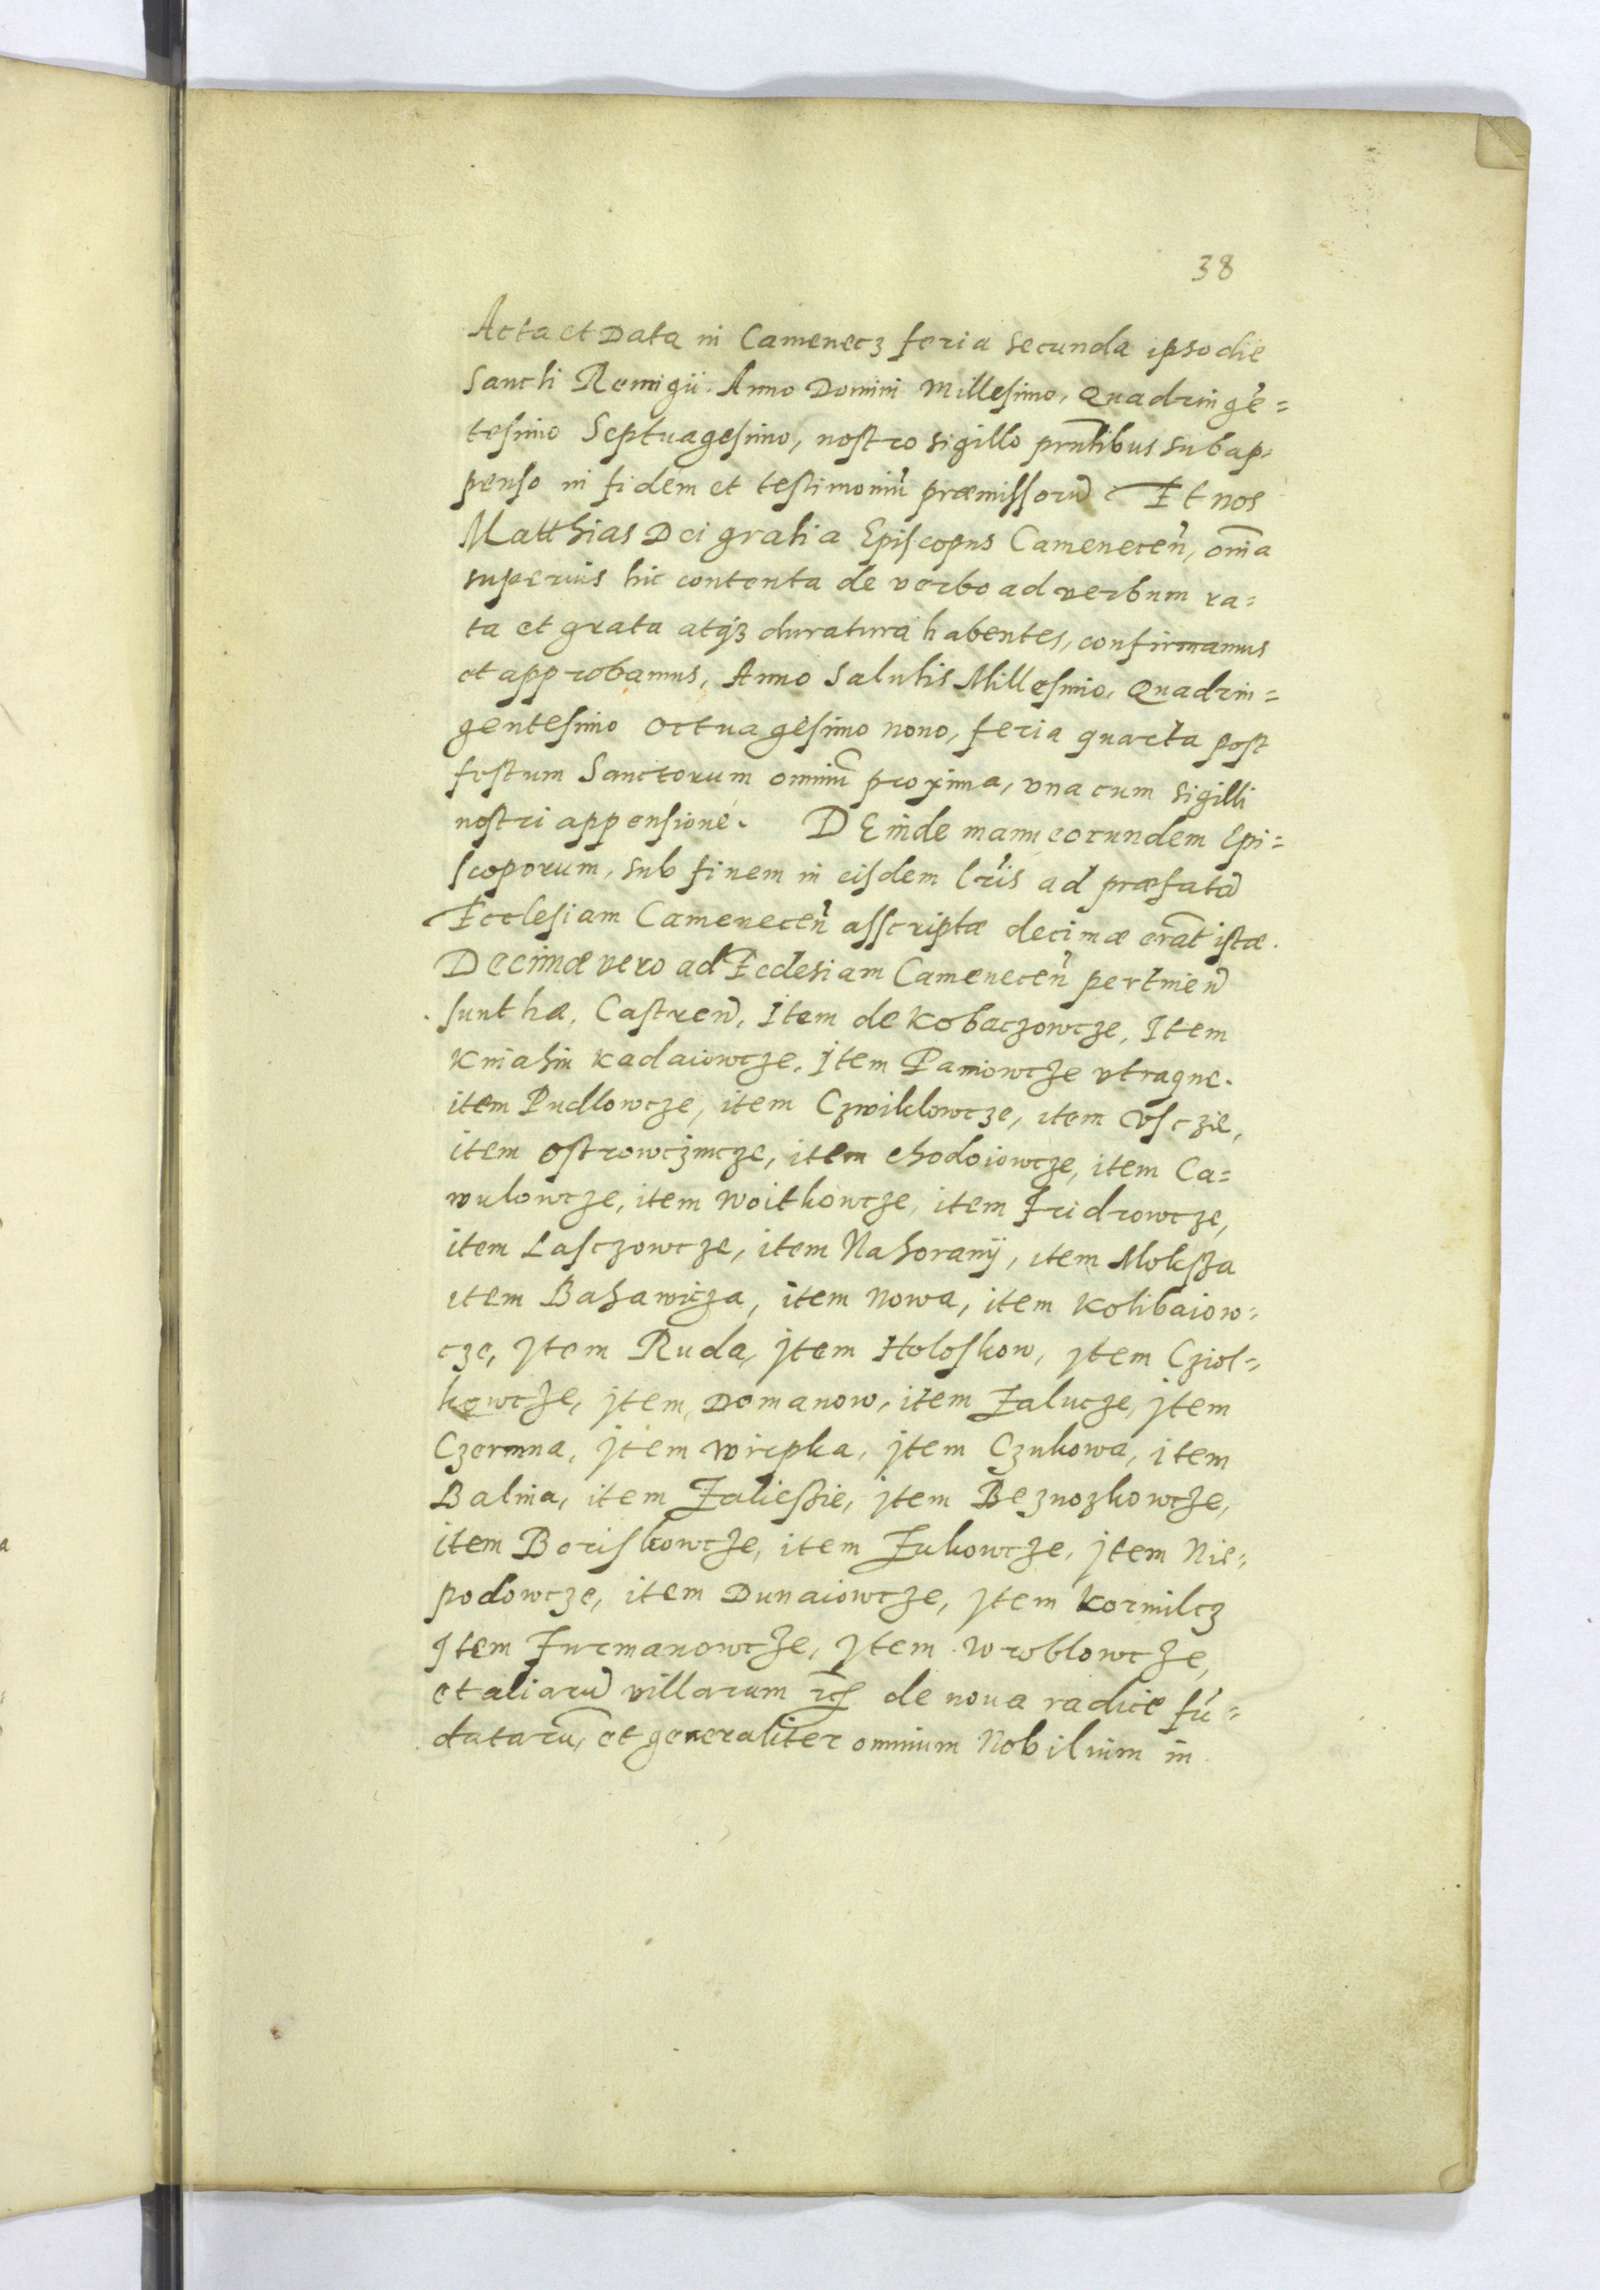 38
Acta et Data in Camenecz feria secunda ipso die
Sancti Remigii. Anno Domini Millesimo, Quadringē=
tesimo Septuagesimo, nostro sigillo pr̄ntibus subap=
penso in fidem et testimoniū præmissorū Et nos
Matthias Dei gratia Episcopus Camenecen̄, om̄ia
superius hic contenta de verbo ad verbum ra=
ta et grata atq̃ȝ duratura habentes, confirmamus
et approbamus, Anno Salutis Millesimo, Quadrin=
gentesimo octuagesimo nono, feria quarta post
festum Sanctorum omniū proxima, vna cum sigilli
nostri appensione. DEinde manu eorundem Epi=
scoporum, sub finem in eisdem lr̄is ad præfatā
Ecclesiam Camenecen̄ asscriptæ decimæ erāt istæ.
Decimæ vero ad Ecclesiam Camenecen̄ pertinen̄
sunt hæ, Castren̄, Item de Kobaczowcze, Item
Kniahin Kadaiowcze, Item Paniowcze vtraque.
item Pudlowcze, item Czwiklowcze, item Vsczie,
item Ostrowczincze, item Chodoiowcze, item Ca=
wulowcze, item Woitkowcze, item Fridrowcze,
item Lasczowcze, item Nahorany, item Moksza
item Bahawicza, item Nowa, item Kolibaiow=
cze, Item Ruda, jtem Holoskow, jtem Cziol=
kowcze, jtem Domanow, item Zalucze, jtem
Czermna, jtem Wrepka, jtem Czukowa, item
Balina, item Zaliesszie, jtem Beznozkowcze,
item Boriskowcze, item Zukowcze, jtem Nie=
podowcze, item Dunaiowcze, jtem Kormilcz
Item Furmanowcze, Item Wroblowcze,
et aliarū villarum de noua radice fū=
datarū, et generaliter omnium Nobilium in